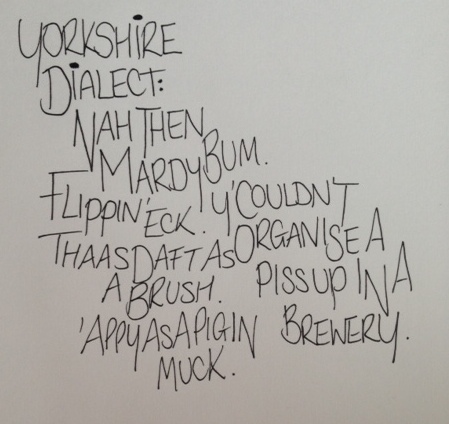 YORKSHIRE
DIALECT:
NAH THEN
MARDY BUM.
FLIPPIN' ECK.
THAAS DAFT AS
A BRUSH.
'APPY AS A PIG IN
MUCK.
Y'COULDN'T
ORGANISE A
PISS UP IN A
BREWERY.